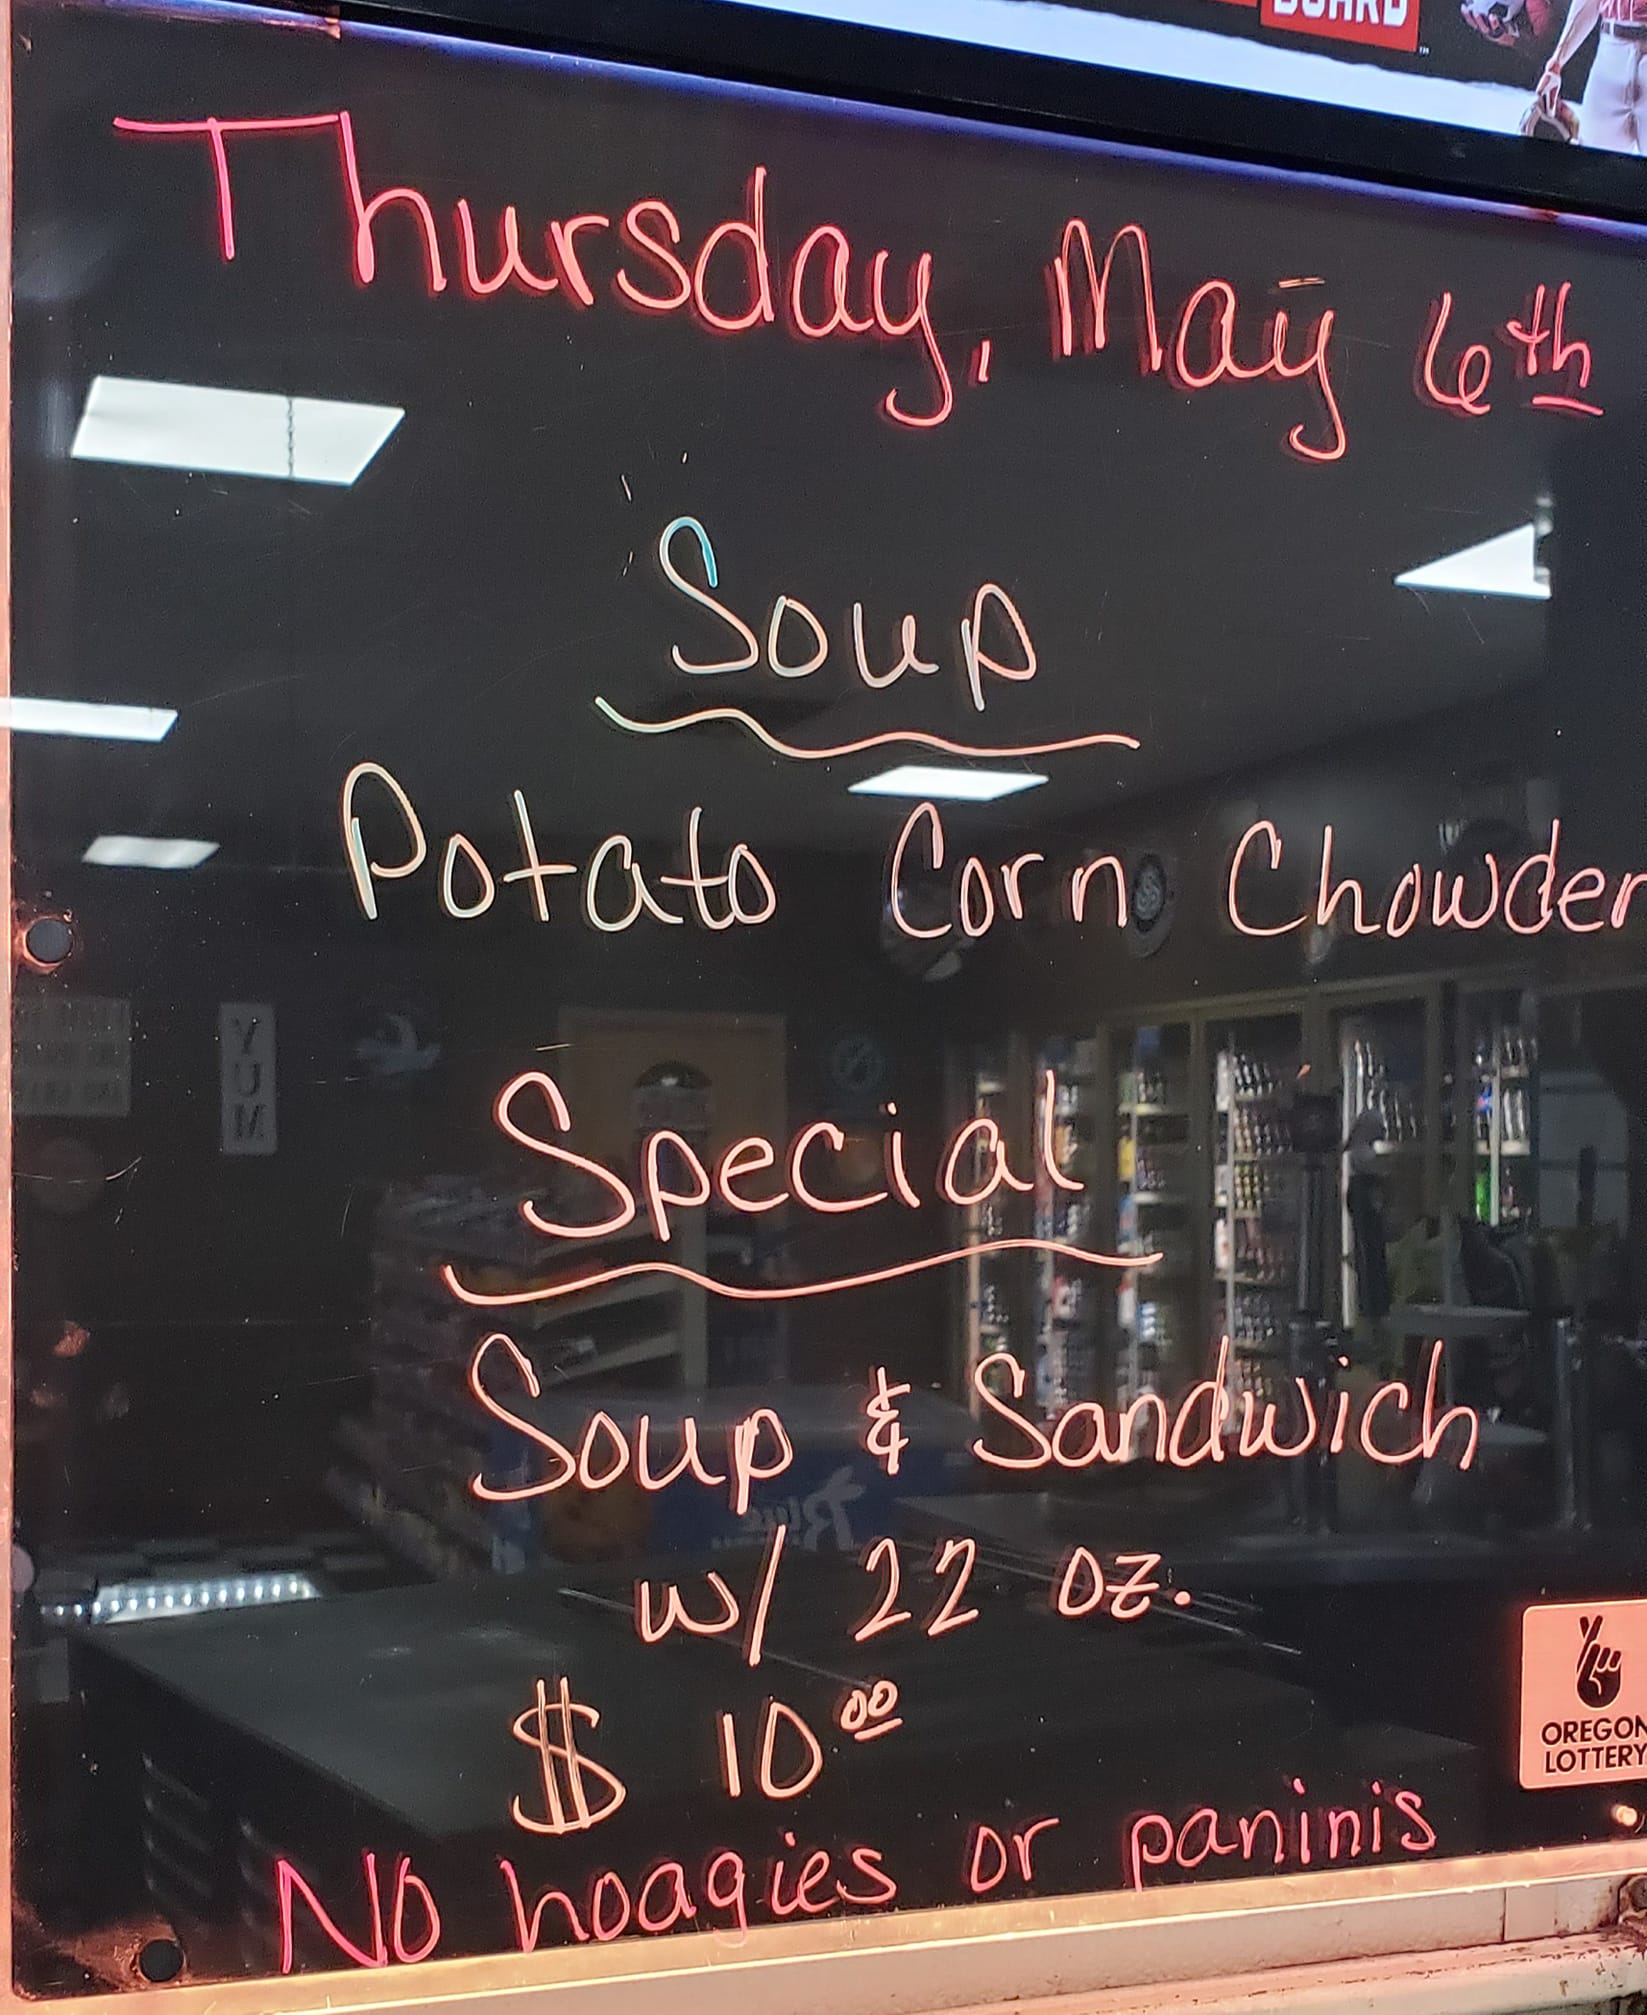 BOARD
Thursday, May 6th
Soup
Potato Corn Chowder
Special
YUM
Soup & Sandwich
w/ 22 oz.
$ 10 00
OREGON
LOTTERY
No hoagies or paninis